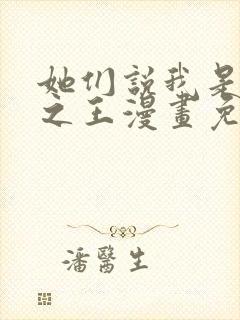 她们説我是
之王漫畫免
潘醫生